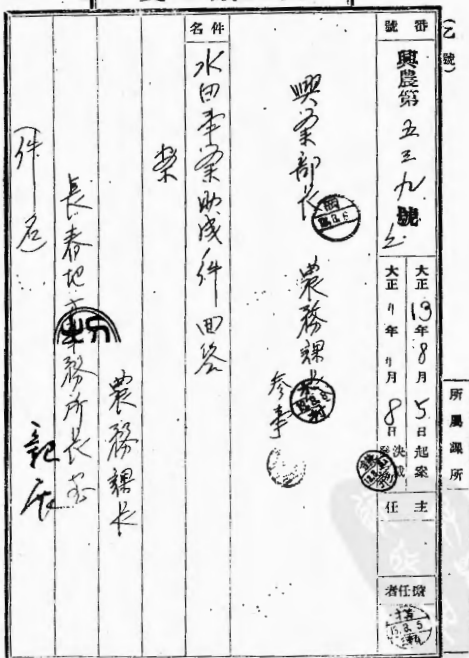 (乙號)
番號
興農第五三九號
大正13年8月5日起案
大正〃年〃月8日決裁
所屬課所
主任
擔任者
興業部長
農務課長
参事
件名
水田事業助成件回答
案
農務課長
長春地方事務所長宛
件名